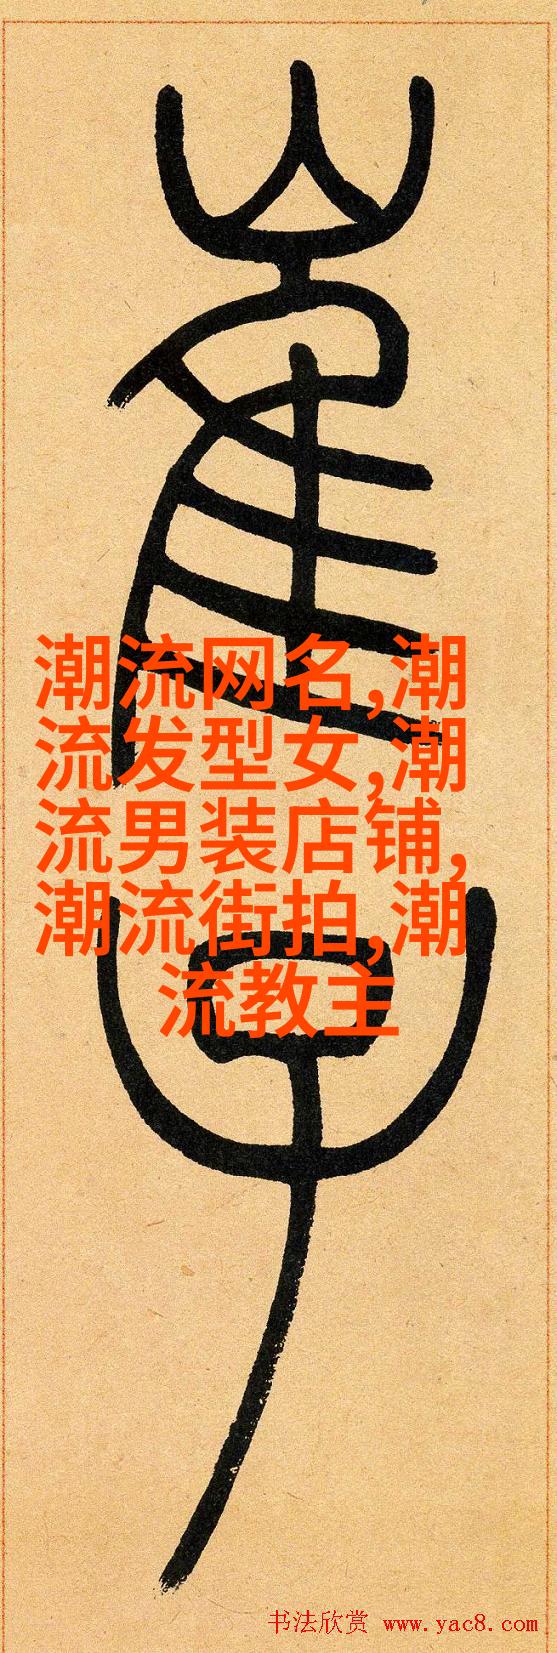 崔子
潮流网名,潮
流发型女,潮
流男装店铺,
潮流街拍,潮
流教主
书法欣赏 www.yac8.com